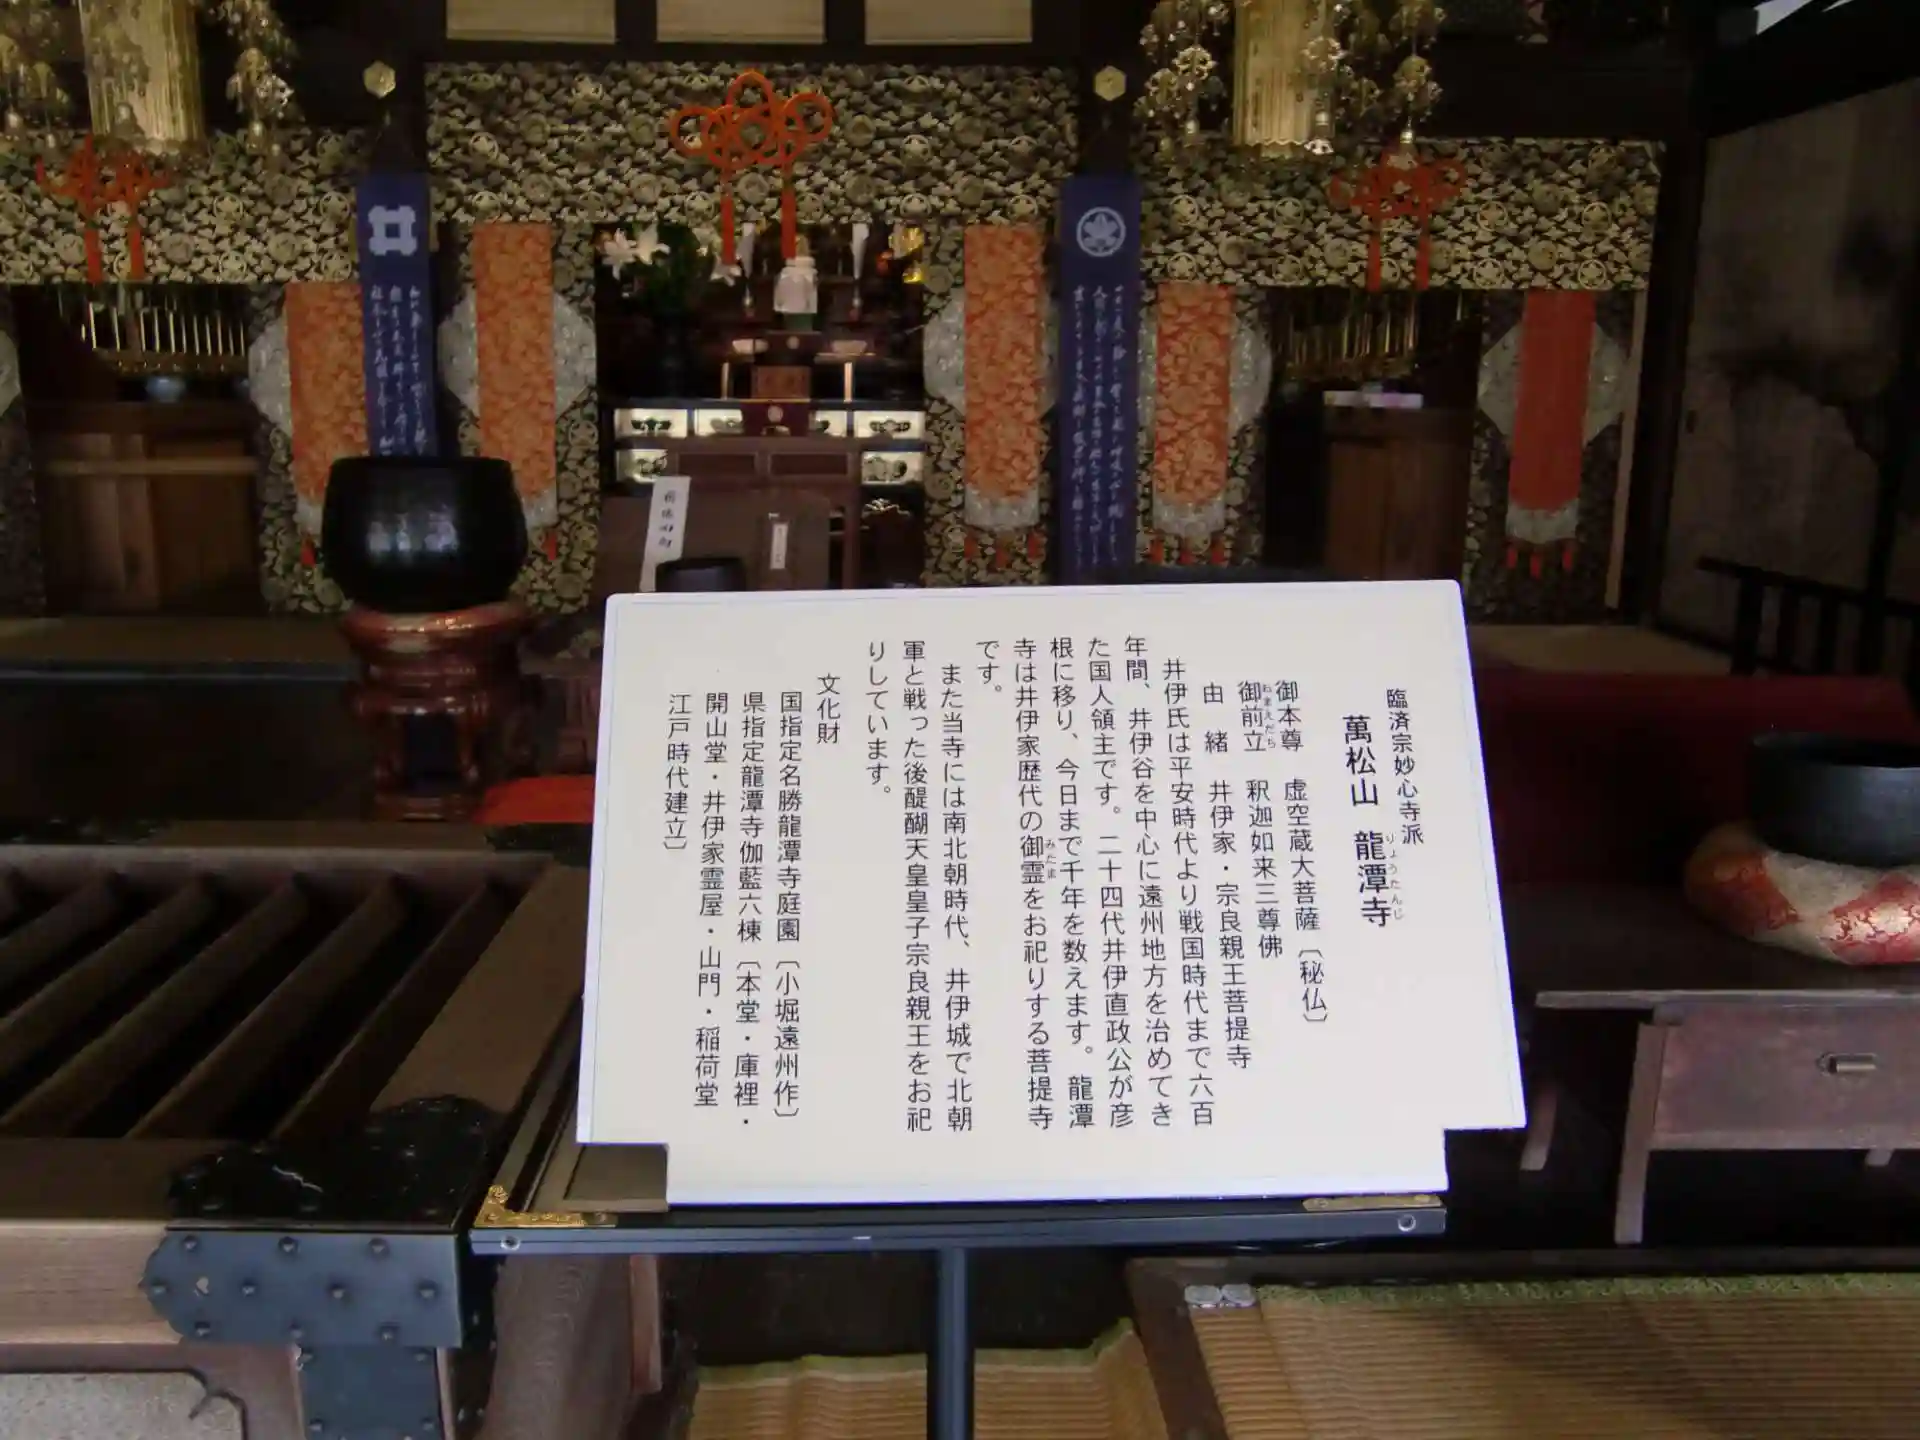 臨済宗妙心寺派
萬松山　龍潭寺
りょうたんじ
御本尊　虚空蔵大菩薩〔秘仏〕
御前立　釈迦如来三尊佛
おまえだち
由　緒　井伊家・宗良親王菩提寺
井伊氏は平安時代より戦国時代まで六百
年間、井伊谷を中心に遠州地方を治めてき
た国人領主です。二十四代井伊直政公が彦
根に移り、今日まで千年を数えます。龍潭
寺は井伊家歴代の御霊をお祀りする菩提寺
みたま
です。
また当寺には南北朝時代、井伊城で北朝
軍と戦った後醍醐天皇皇子宗良親王をお祀
りしています。
文化財
国指定名勝龍潭寺庭園〔小堀遠州作〕
県指定龍潭寺伽藍六棟〔本堂・庫裡・
開山堂・井伊家霊屋・山門・稲荷堂
江戸時代建立〕